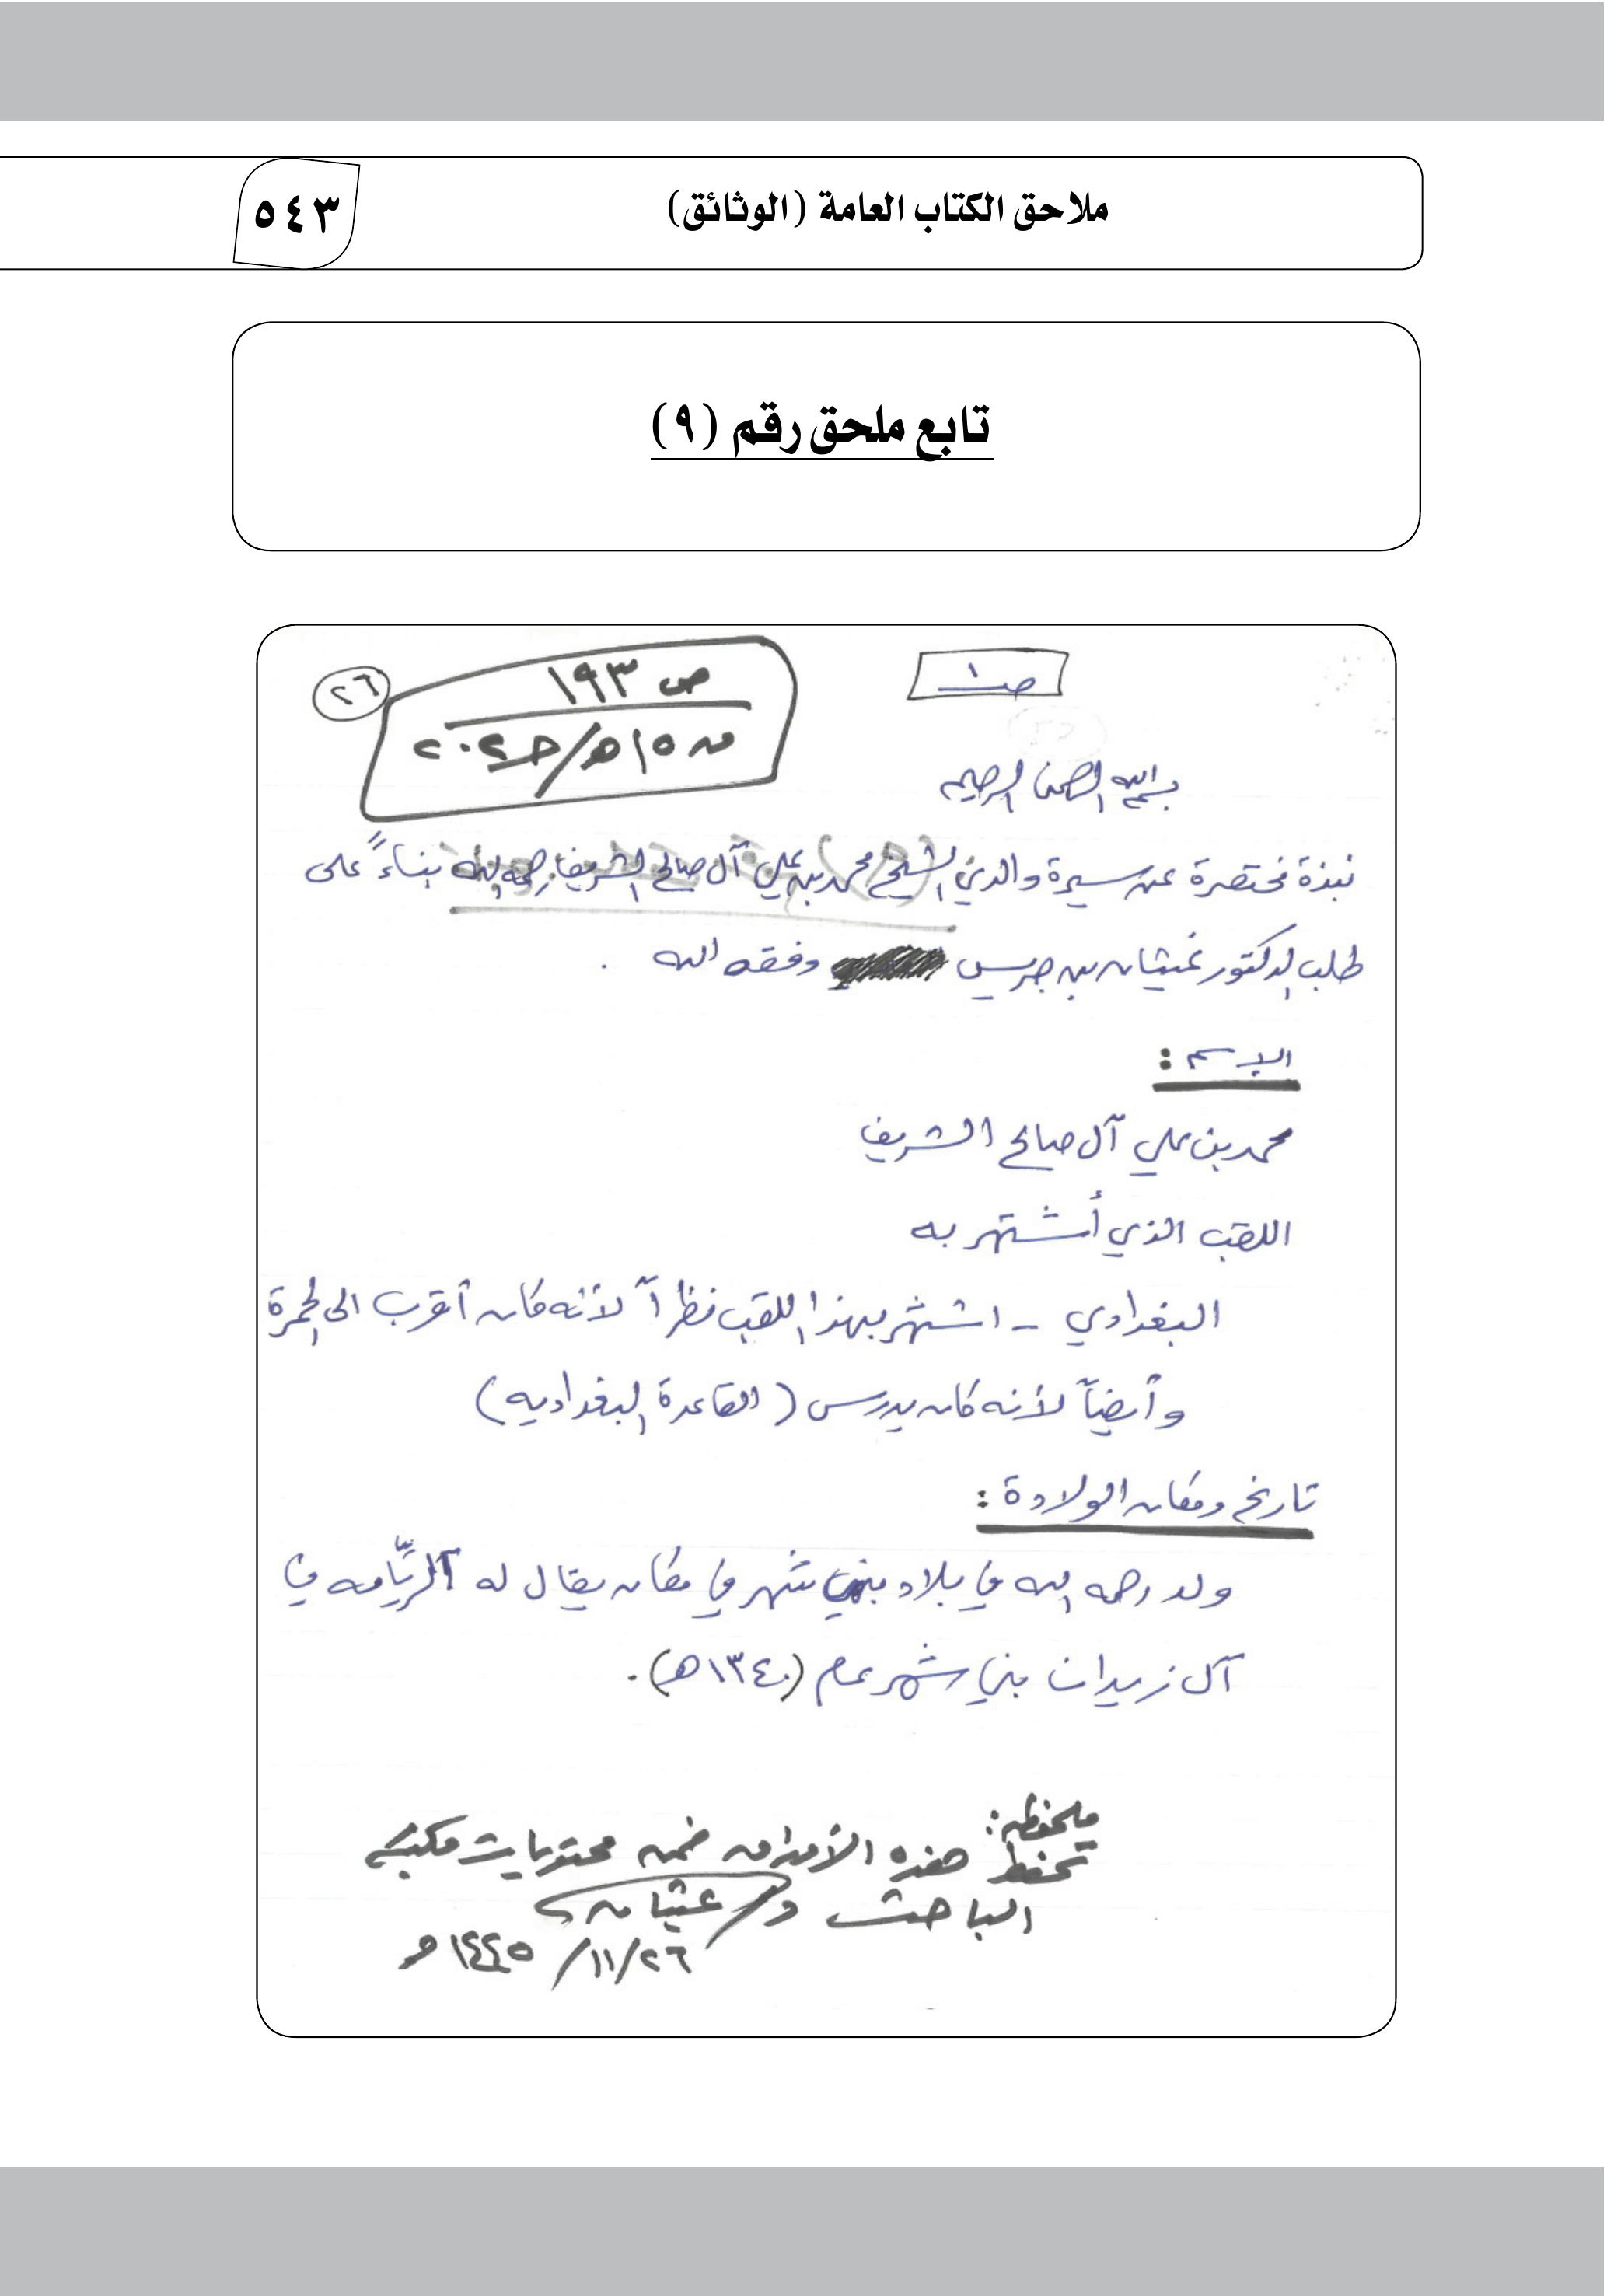 ملاحق الكتاب العامة (الوثائق)
٥٤٣
تابع ملحق رقم (٩)
ص١
ص ١٩٣
٢٦
بسم الله الرحمن الرحيم
نبذة مختصرة عن سيرة والدي الشيخ محمد بن علي آل صالح الشريف رحمه الله بناءً على
طلب الدكتور غيثان بن جريس وفقه الله .
الإسم :
محمد بن علي آل صالح الشريف
اللقب الذي أشتهر به
البغدادي - اشتهر بهذا اللقب نظراً لأنه كان أقرب الى الحمرة
وأيضاً لأنه كان يدرس (القاعدة البغداديه)
تاريخ ومكان الولادة :
ولد رحمه الله في بلاد بني شهر في مكان يقال له في
آل زيدان بني شهر عام (١٣٤٠هـ).
ملحوظه:
تحفظ هذه الأوراق ضمن محتويات مكتبة
الباحث د/ غيثان
٢٦/١١/١٤٤٥هـ